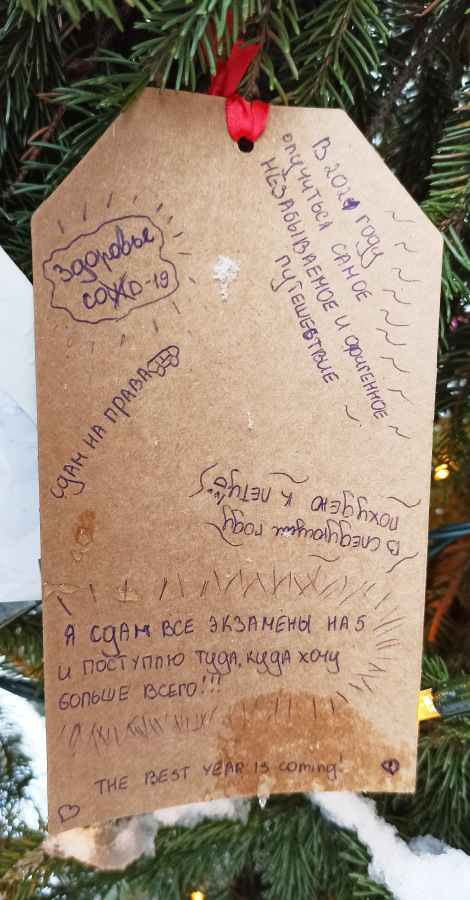 В 2021 году
случиться самое
НЕЗАБЫВАЕМОЕ и офигенное
ПУТЕШЕСТВИЕ
Здоровье
COVID-19
сдам на права
В следующем году
похудею к лету
Я сдам все экзамены на 5
и поступлю туда, куда хочу
больше всего!!!
THE BEST YEAR is coming!